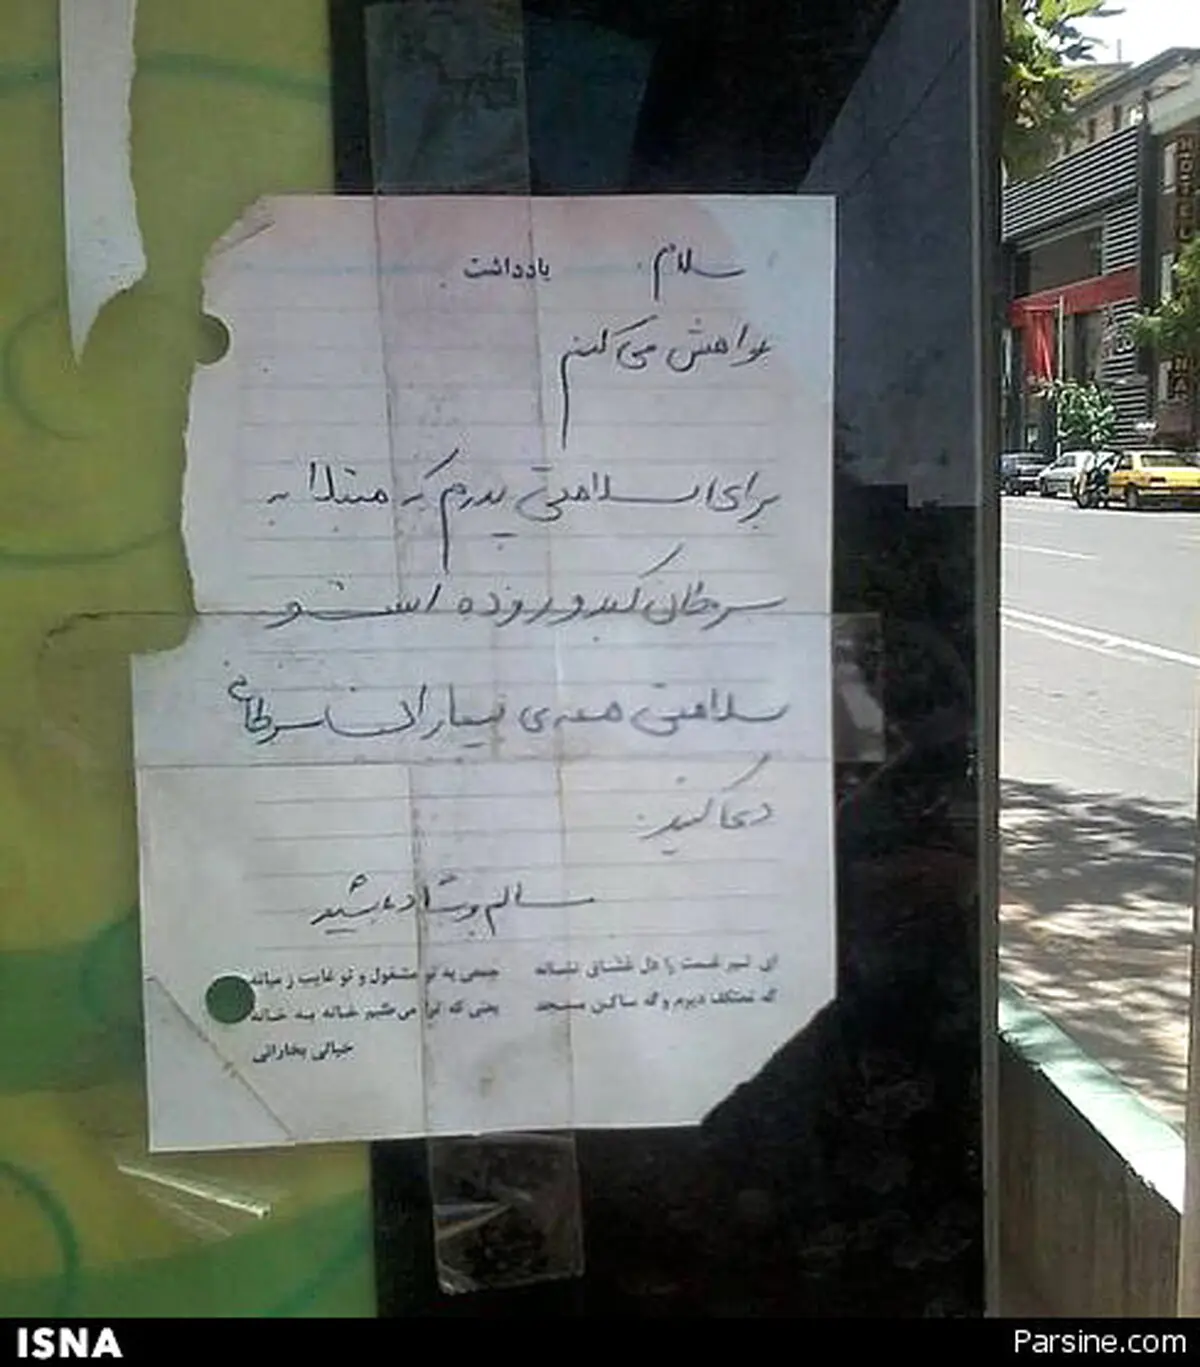 سلام یادداشت
خواهش می‌کنم
برای سلامتی پدرم که مبتلا به
سرطان کبد و روده است و
سلامتی همه‌ی بیماران سرطانی
دعا کنید.
سالم و شاد باشید
ای تیر غمت را دل عشاق نشانه جمعی به تو مشغول و تو غایب ز میانه
گه معتکف دیرم و گه ساکن مسجد یعنی که ترا می‌طلبم خانه به خانه
خیالی بخارائی
HOTEL
ISNA
Parsine.com